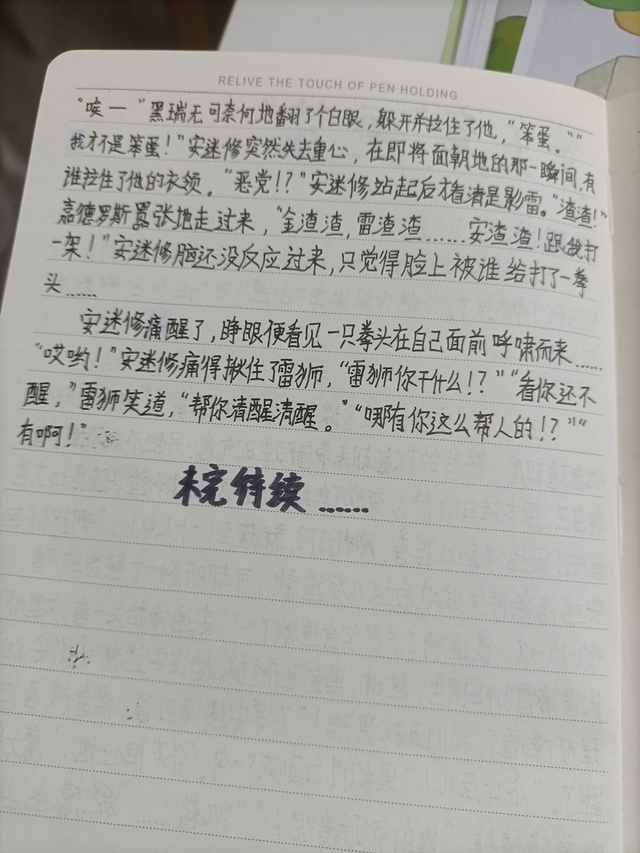 RELIVE THE TOUCH OF PEN HOLDING
“唉—”黑瑞无可奈何地翻了个白眼，躲开并拉住了他，“笨蛋。”“
我才不是笨蛋！”安迷修突然失去重心，在即将面朝地的那一瞬间，有
谁拉住了他的衣领。“恶党！？”安迷修站起后才看清是影雷。“渣渣！”
嘉德罗斯嚣张地走过来，“金渣渣，雷渣渣……安渣渣！跟我打
一架！”安迷修脑还没反应过来，只觉得脸上被谁给打了一拳
头……
安迷修痛醒了，睁眼便看见一只拳头在自己面前呼啸而来……
“哎哟！”安迷修痛得揪住了雷狮，“雷狮你干什么！？”“看你还不
醒，”雷狮笑道，“帮你清醒清醒。”“哪有你这么帮人的！？”“
有啊！”
未完待续……